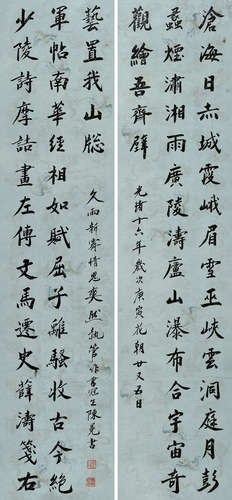 滄海日赤城霞峨眉雪巫峽雲洞庭月彭
蠡煙瀟湘雨廣陵濤廬山瀑布合宇宙奇
觀繪吾齊壁
光緒十六年歲次庚寅花朝廿又五日
少陵詩摩詰畫左傳文馬遷史薛濤箋右
軍帖南華經相如賦屈子離騷收古今絕
藝置我山牎
久雨新霽情思爽然執管作書 陳冕書